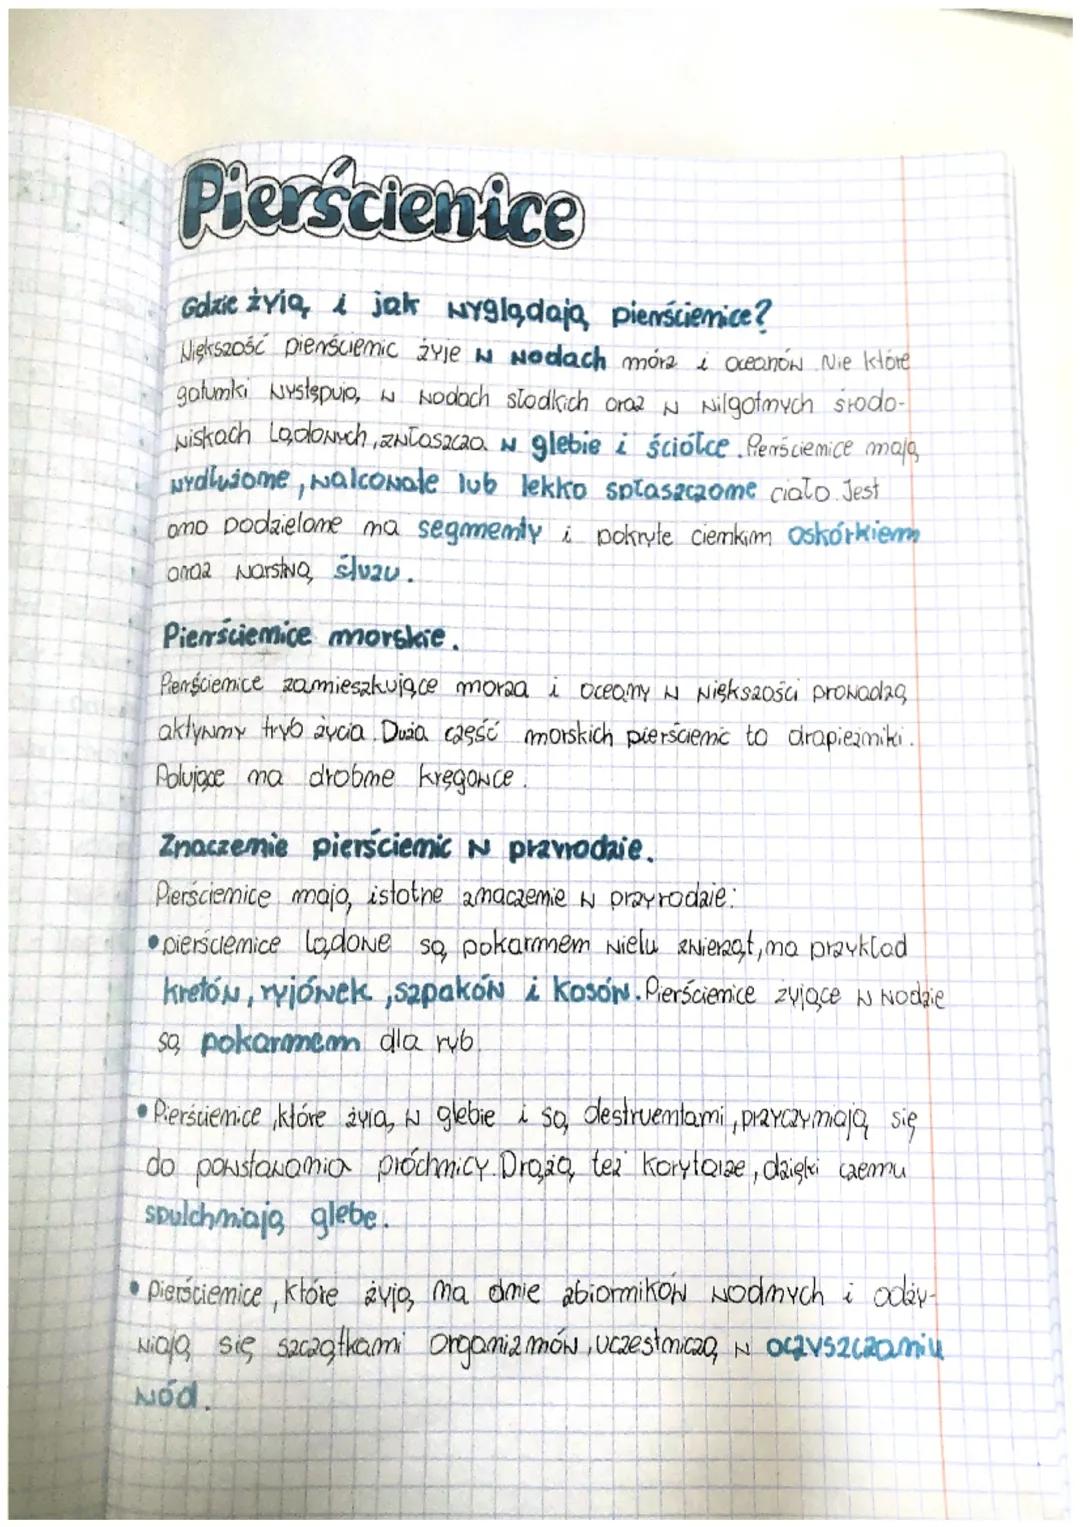 Pierścienice
Gdzie żyją i jak wyglądają pierścienice?
Większość pierścienic żyje w wodach mórz i oceanów. Nie które
gatunki występują w wodach słodkich oraz w wilgotnych środo-
wiskach lądowych, zwłaszcza w glebie i ściółce. Pierścienice mają
wydłużone, walcowate lub lekko spłaszczone ciało. Jest
ono podzielone na segmenty i pokryte cienkim oskórkiem
oraz warstwą śluzu.
Pierścienice morskie.
Pierścienice zamieszkujące morza i oceany w większości prowadzą
aktywny tryb życia. Duża część morskich pierścienic to drapieżniki.
Polujące na drobne kręgowce.
Znaczenie pierścienic w przyrodzie.
Pierścienice mają istotne znaczenie w przyrodzie:
• pierścienice lądowe są pokarmem wielu zwierząt, na przykład
kretów, ryjówek, szpaków i kosów. Pierścienice żyjące w wodzie
są pokarmem dla ryb.
• Pierścienice, które żyją w glebie i są destruentami, przyczyniają się
do powstawania próchnicy. Drążą też korytarze, dzięki czemu
spulchniają glebe.
• Pierścienice, które żyją na dnie zbiorników wodnych i odży-
wiają się szczątkami organizmów, uczestniczą w oczyszczaniu
wód.